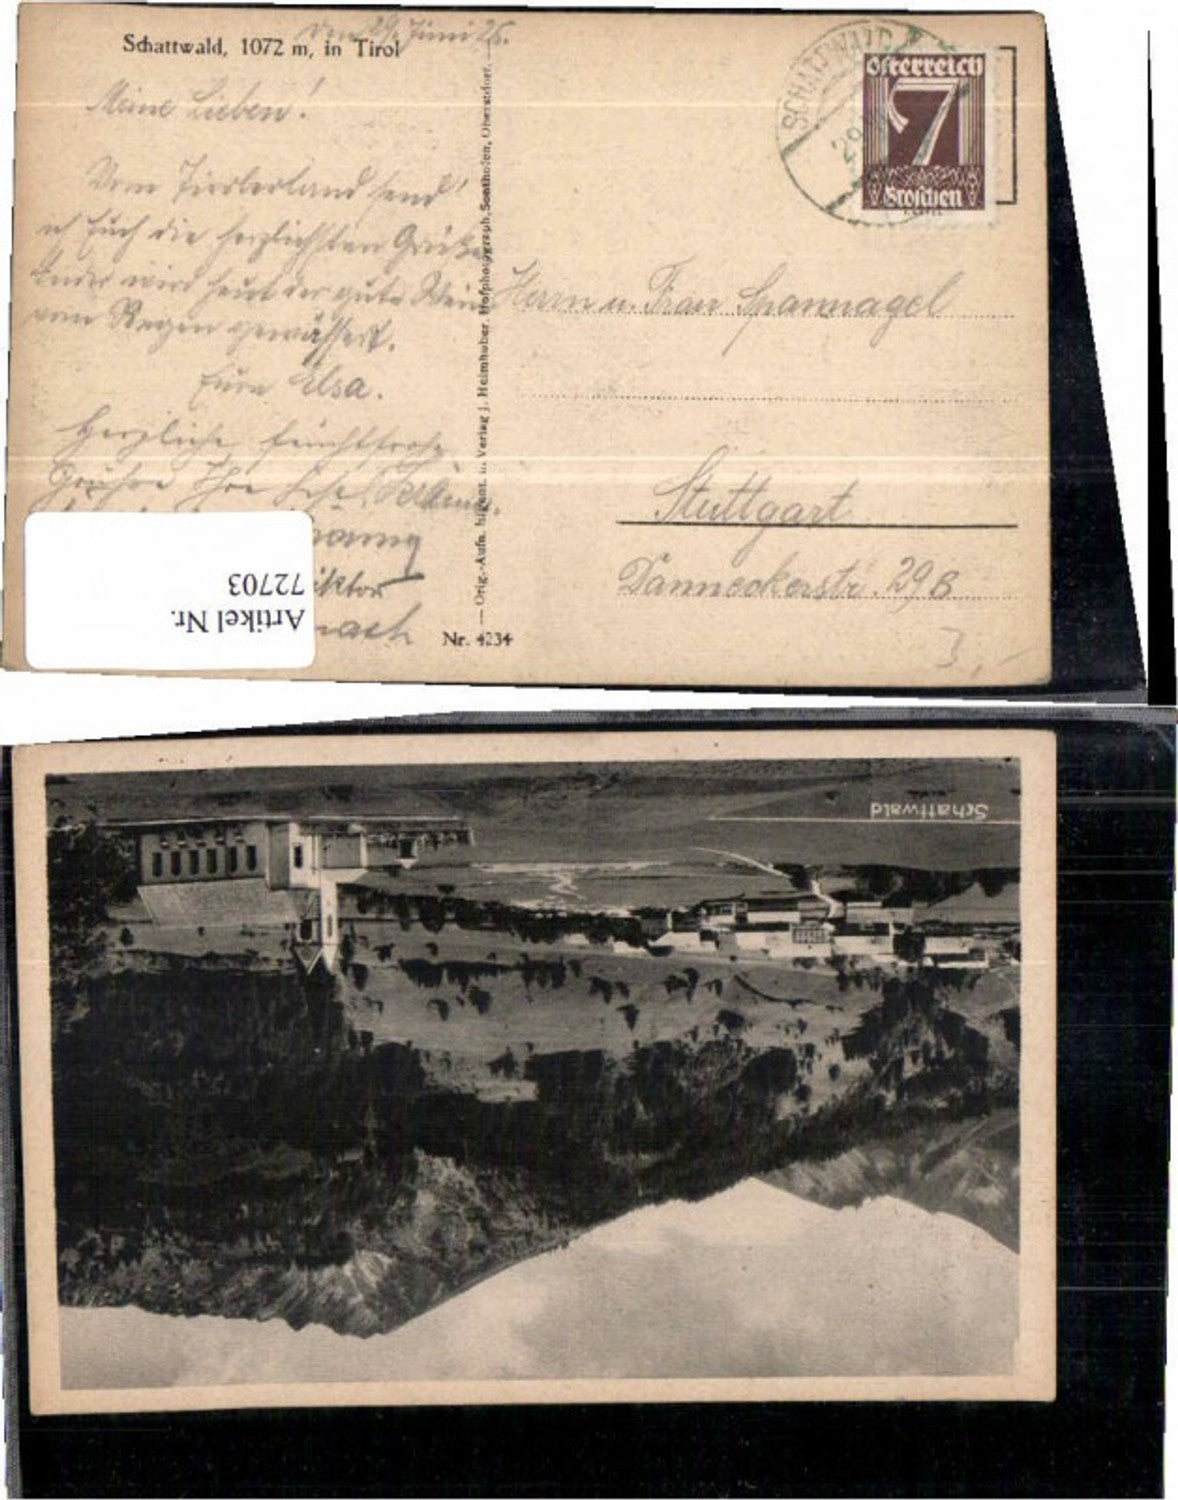 Schattwald, 1072 m, in Tirol
den 29. Juni 26.
Meine Lieben!
Vom Tirolerland send'
ich Euch die herzlichsten Grüße
leider wird heut der gute Wein
vom Regen gewässert.
Eure Elsa.
Herzliche feuchtfrohe
Grüße Ihre
Artikel Nr.
72703
Nr. 4234
Orig.-Aufn. Eigent. u. Verlag J. Heimhuber, Hofphotograph, Sonthofen, Oberstdorf.
SCHATTWALD
29
Österreich
7
Groschen
Herrn u. Frau Spannagel
Stuttgart
Danneckerstr. 29 B
3,-
Schattwald